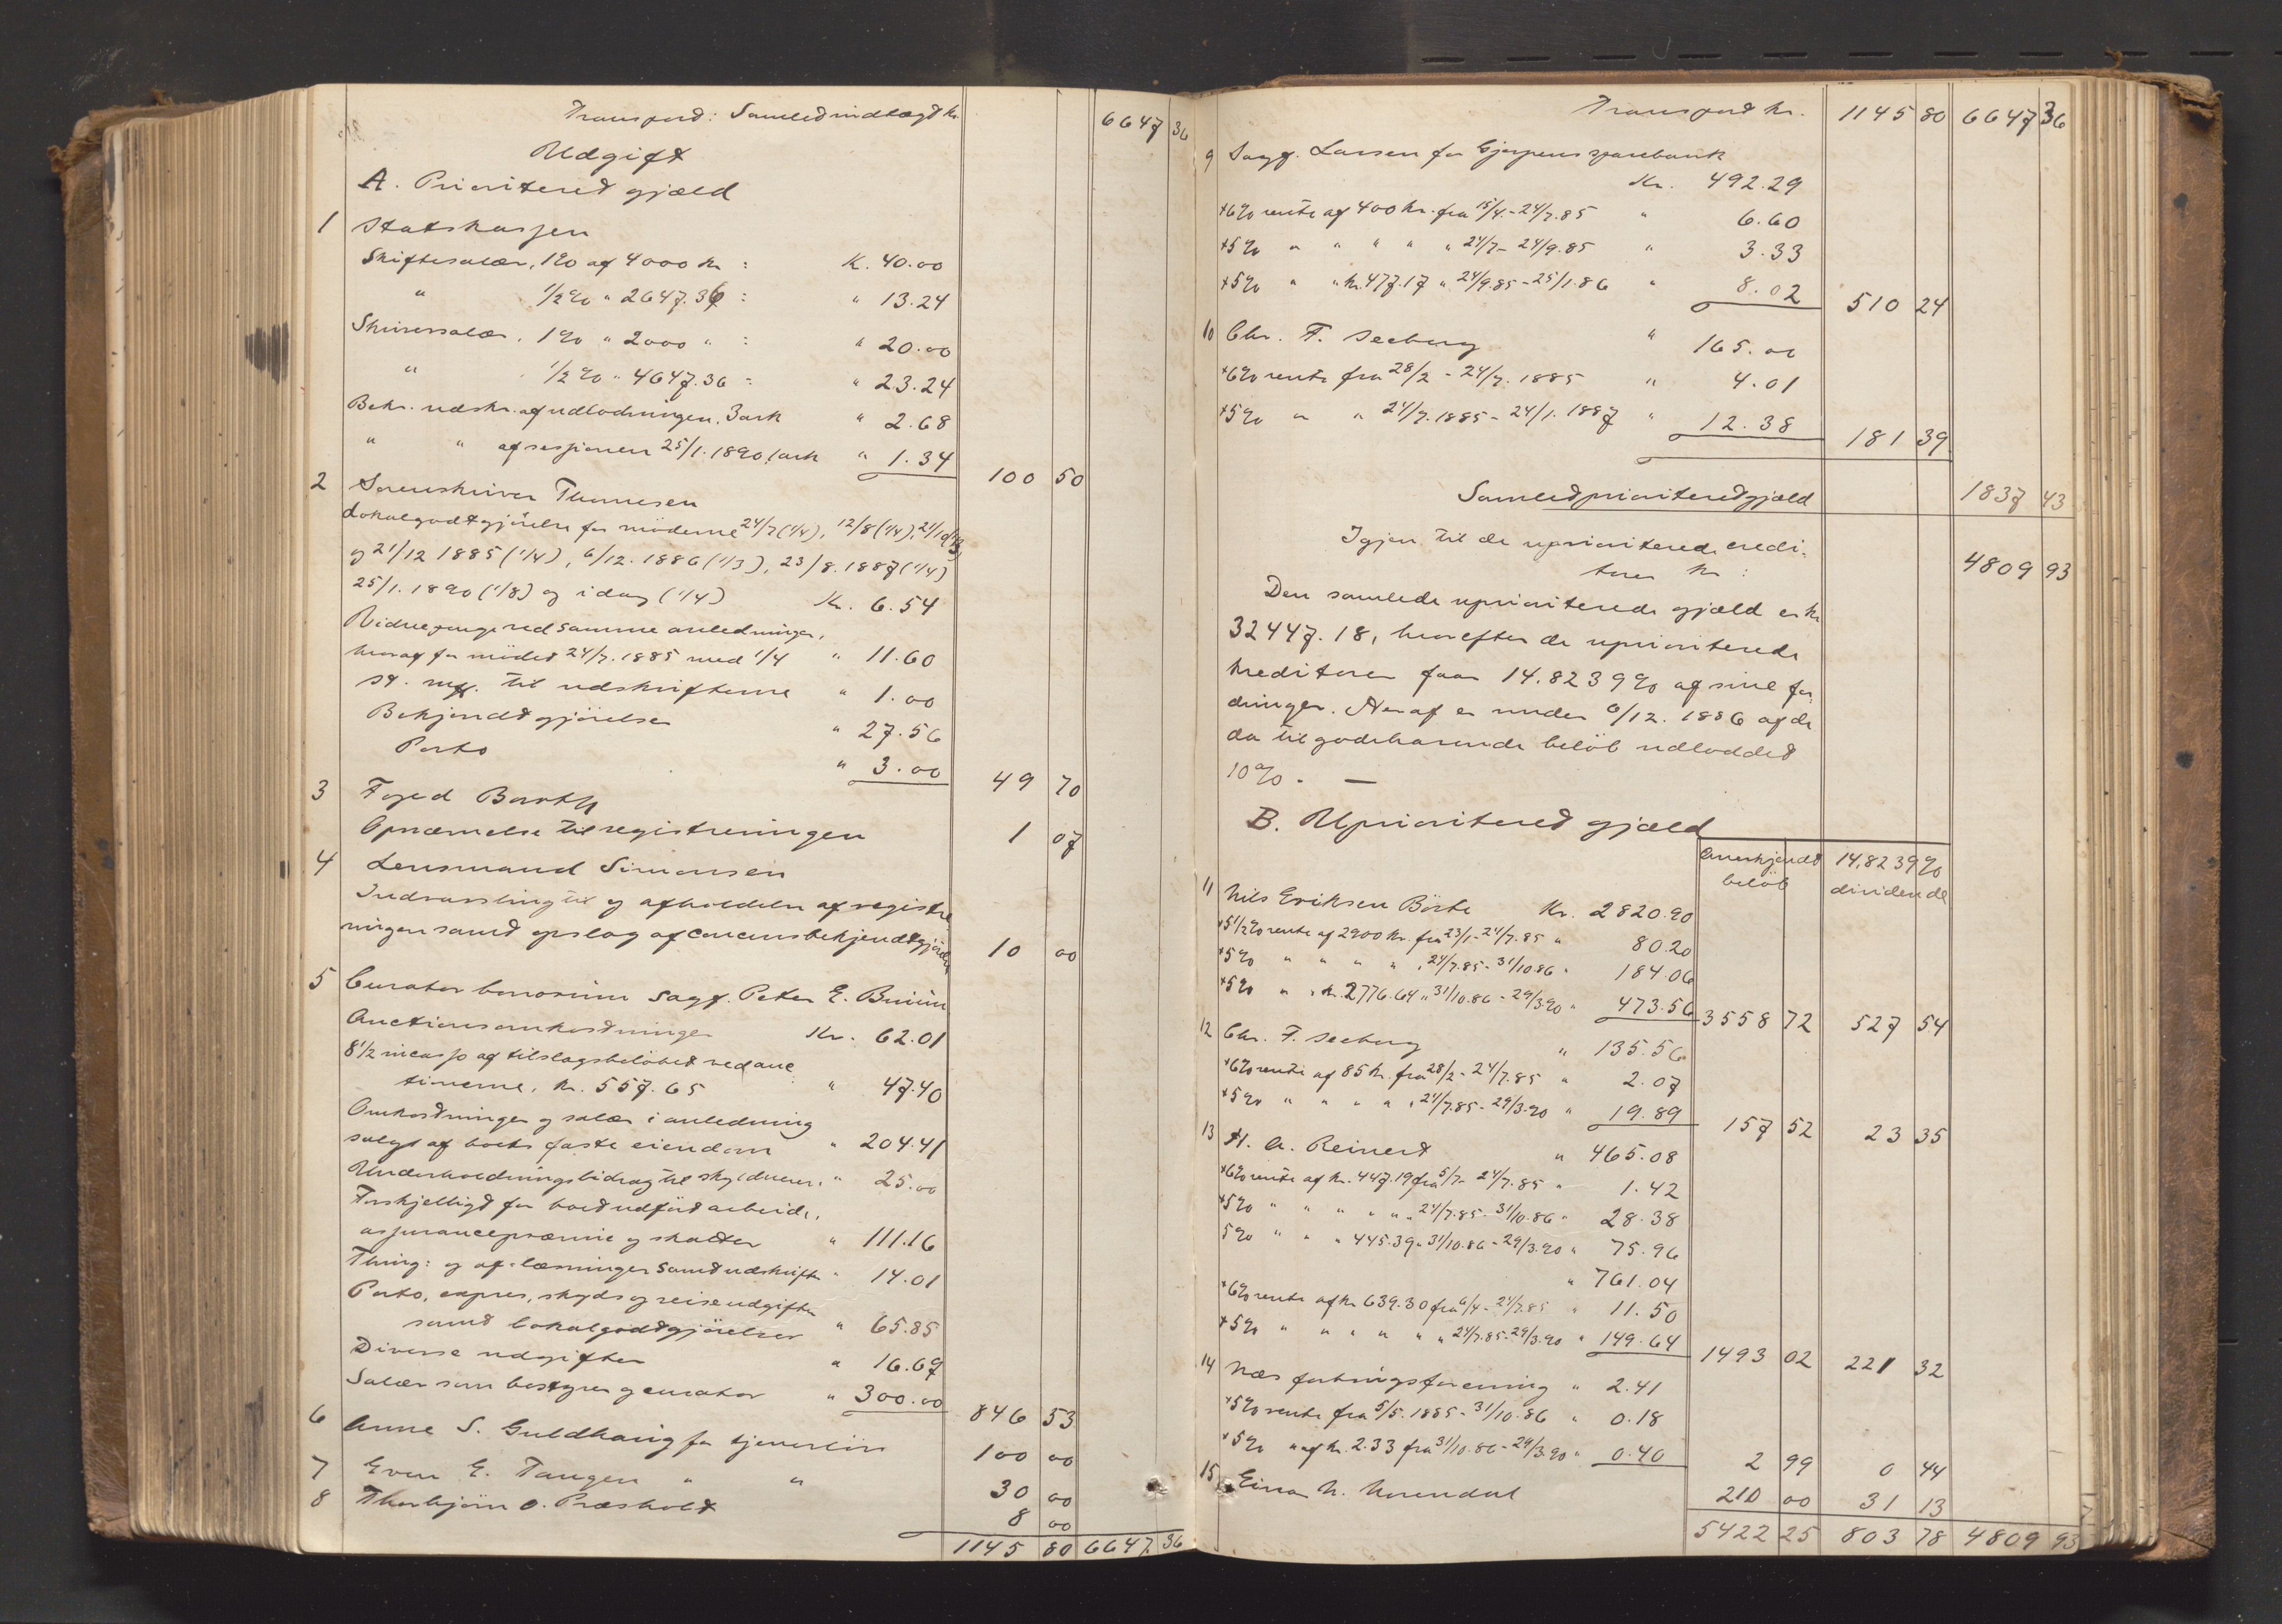 Transport: Samled indtægt kr. 6647 36
Udgift
A. Prioritered gjæld
1 Statskassen
Skiftesalær, 1% af 4000 kr : K. 40.00
" 1/2% " 2647.36 : " 13.24
Skriversalær, 1% " 2000 " : " 20.00
" 1/2% " 4647.36 : " 23.24
Bekr. udskr. af udlodningen, 3 ark " 2.68
" " af sessionen 25/1.1890 1 ark " 1.34 100 50
2 Sorenskriver Thomesen
Lokalgodtgjörelse for möderne 24/7 (1/4), 12/8 (1/4), 21/10 (1/3)
og 21/12 1885 (1/4), 6/12.1886 (1/3), 23/8.1887 (1/4)
25/1.1890 (1/8) og idag (1/4) Kr. 6.54
Vidnepenge ved samme anledninger,
hvoraf for mödet 24/7.1885 med 1/4 " 11.60
st. mf. til udskrifterne " 1.00
Bekjendtgjörelser " 27.56
Porto " 3.00 49 70
3 Foged Barth
Opnævnelse til registreringen 1 07
4 Lensmand Simonsen
Indvarsling til og afholdelse af registre
ringen samt opslag af concursbekjendtgjörelse 10 00
5 Curator bonorum sagf. Peter E. Bruun
Auctionsomkostninger Kr. 62.01
8 1/2 incasso af tilslagsbelöbet ved auc
tionerne, kr. 557.65 : " 47.40
Omkostninger og salær i anledning
salget af boets faste eiendom " 204.41
Underholdningsbidrag til skyldneren " 25.00
Forskjelligt for boet udfört arbeide,
assurancepræmie og skatter " 111.16
Thing: og af-læsninger samt udskrifter " 14.01
Porto, expres, skyds og reiseudgifter
samt lokalgodtgjörelser " 65.85
Diverse udgifter " 16.69
Salær som bestyrer og curator " 300.00 846 53
6 Anne S. Guldhaug for tjenerlön 100 00
7 Even E. Tangen " " 30 00
8 Thorbjörn O. Præsholt 8 00
1145 80 6647 36
Transport kr. 1145 80 6647 36
9 Sagf. Larsen for Gjerpens sparebank
Kr. 492.29
+6% rente af 400 kr. fra 15/4.-24/7.85 " 6.60
+5% " " " " " 24/7-24/9.85 " 3.33
+5% " " kr. 477.17 " 24/9.85-25/1.86 " 8.02 510 24
10 Chr. F. Seeberg " 165.00
+6% rente fra 28/2 - 24/7.1885 " 4.01
+5% " " 24/7.1885 - 24/1.1887 " 12.38 181 39
Samled prioritered gjæld 1837 43
Igjen til de uprioriterede credi-
torer kr : 4809 93
Den samlede uprioriterede gjæld er kr
32447.18, hvorefter de uprioriterede
kreditorer faar 14.8239% af sine for
dringer. Heraf er under 6/12.1886 af de
da tilgodehavende belöb udloddet
10%. —
B. Uprioritered gjæld
Anerkjendt 14,8239%
belöb dividende
11 Nils Eriksen Börte Kr. 2820.90
+5 1/2% rente af 2900 kr. fra 23/1-24/7.85 " 80.20
+5% " " " " " 24/7.85-31/10.86 " 184.06
+5% " " kr. 2776.64 " 31/10.86-29/3.90 " 473.56 3558 72 527 54
12 Chr. F. Seeberg " 135.56
+6% rente af 85 kr. fra 28/2-24/7.85 " 2.07
+5% " " " " " 24/7.85-29/3.90 " 19.89 157 52 23 35
13 H. A. Reinert " 465.08
+6% rente af kr. 447.19 fra 5/7-24/7.85 " 1.42
+5% " " " " " " 24/7.85-31/10.86 " 28.38
5% " " " 445.39 " 31/10.86-29/3.90 " 75.96
" 761.04
+6% rente af kr 639.30 fra 6/4-24/7.85 " 11.50
+5% " " " " " " 24/7.85-29/3.90 " 149.64 1493 02 221 32
14 Næs forbrugsforening " 2.41
+5% rente fra 5/5.1885-31/10.86 " 0.18
+5% " af kr. 2.33 fra 31/10.86-29/3.90 " 0.40 2 99 0 44
15 Einar N. 210 00 31 13
5422 25 803 78 4809 93